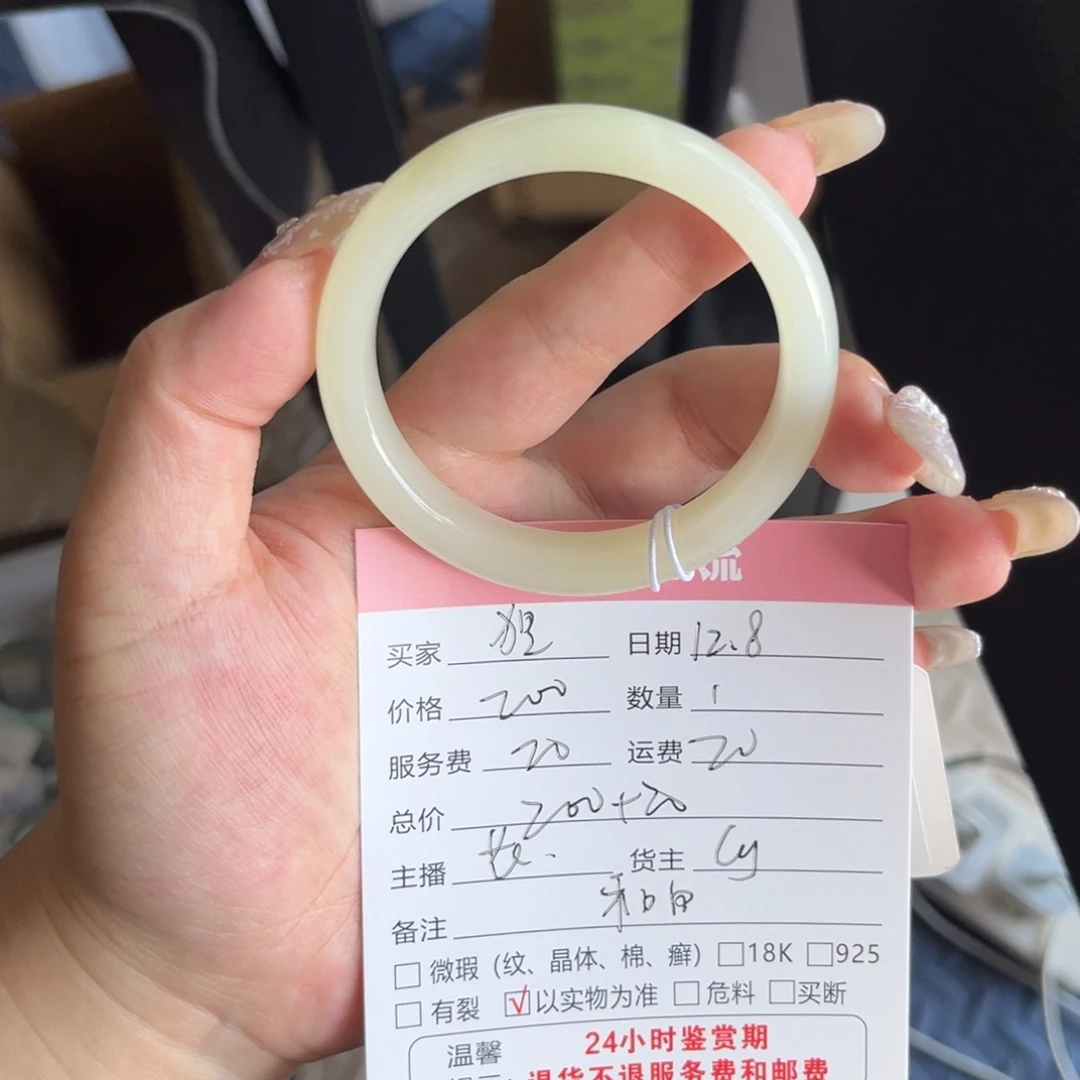 流
买家 日期 12.8
价格 200 数量 1
服务费 20 运费 20
总价 200+20
主播 货主 Cy
备注
微瑕（纹、晶体、棉、癣） 18K 925
有裂 √ 以实物为准 危料 买断
温馨 24小时鉴赏期
退货不退服务费和邮费